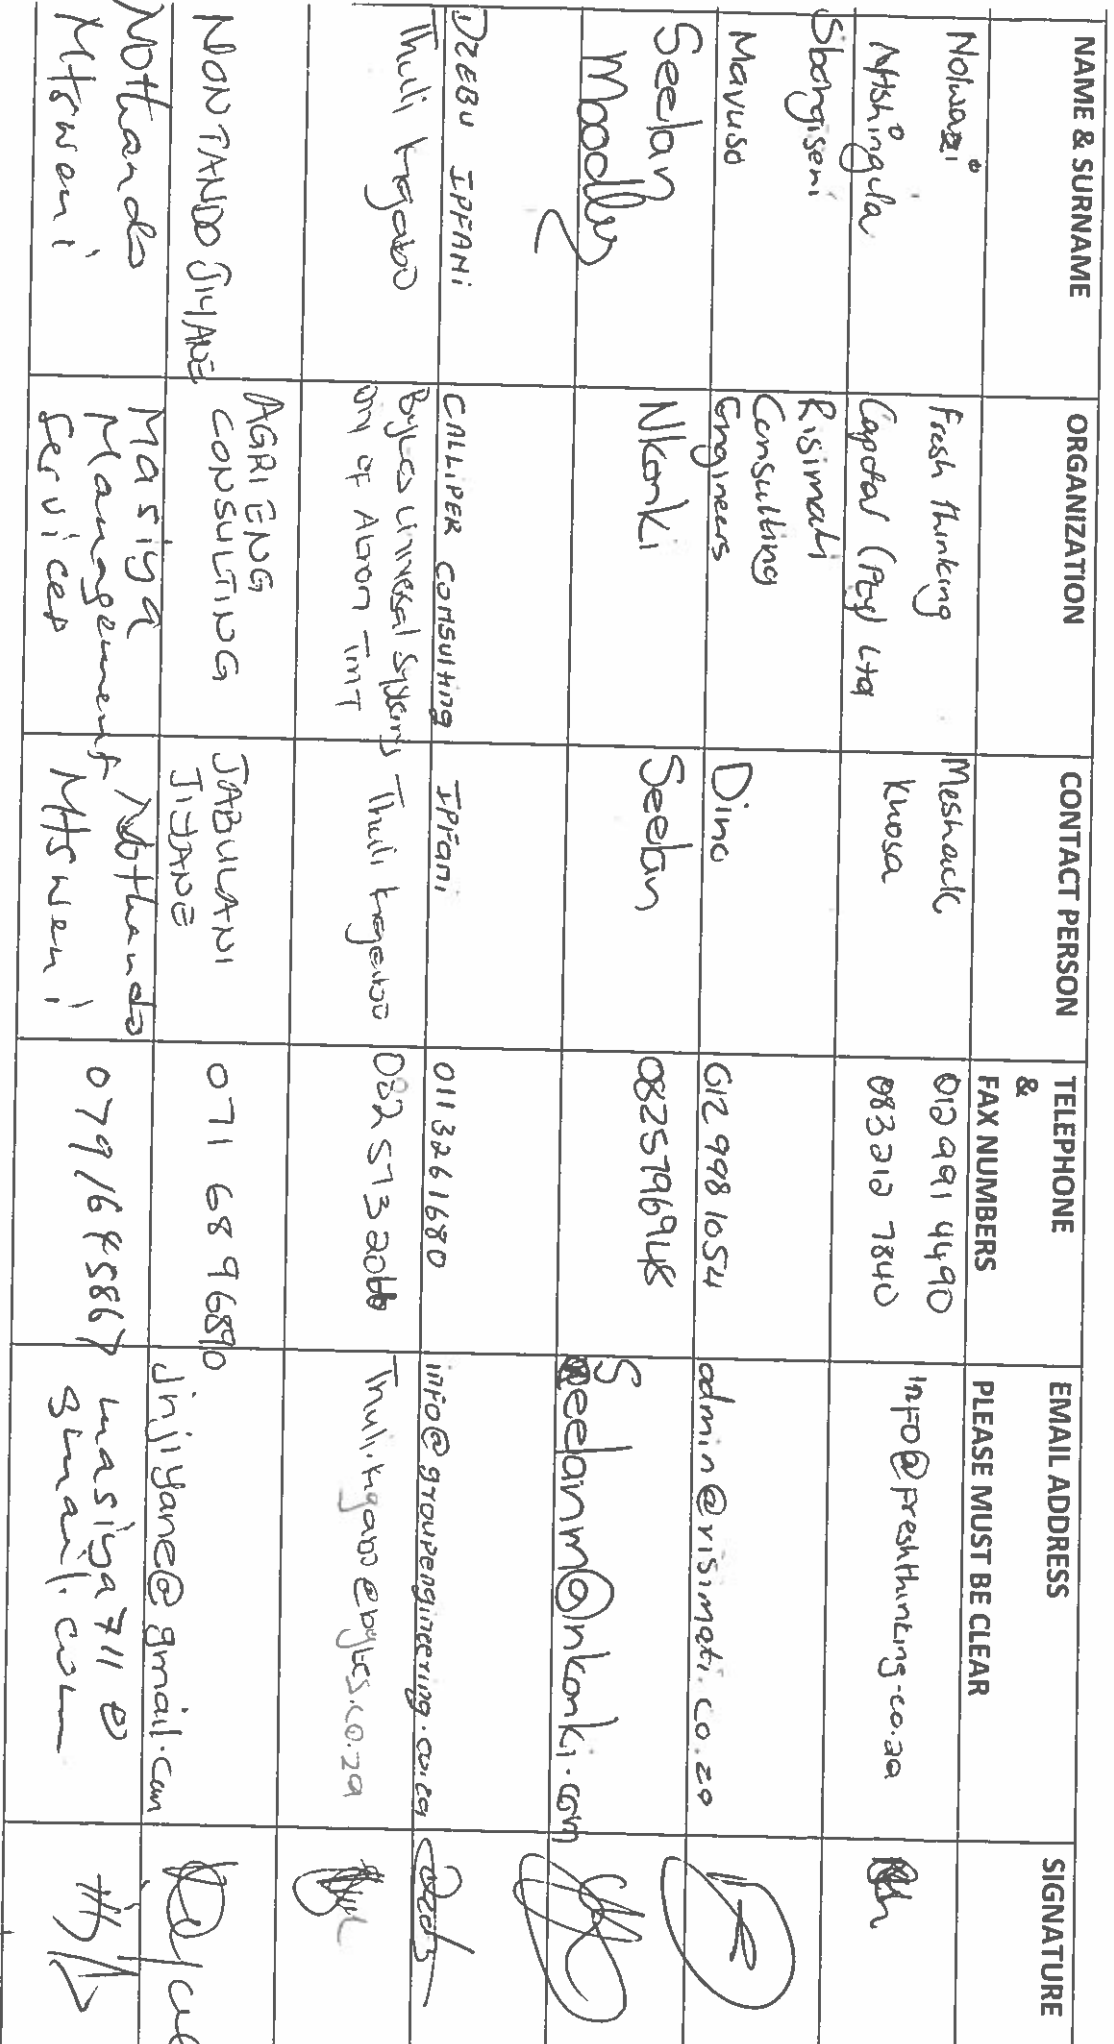 NAME & SURNAME
ORGANIZATION
CONTACT PERSON
TELEPHONE
&
FAX NUMBERS
EMAIL ADDRESS
PLEASE MUST BE CLEAR
SIGNATURE
Nolwazi
Ntshingula
Fresh thinking
Capital (Pty) Ltd
Meshack
Khosa
012 991 4490
083 212 7840
info@freshthinking.co.za
Sbongiseni
Mavuso
Risimati
Consulting
Engineers
Dino
012 998 1054
admin@risimati.co.za
Seelan
Moodley
Nkonki
Seelan
0825796948
Seelanm@nkonki.com
DZEBU IPFANI
CALLIPER CONSULTING
IPFANI
0113261680
info@groupengineering.co.za
Thuli Kgabo
Bytes Universal Systems
Div of Altron TMT
Thuli Kgabo
082 573
Thuli.kgabo@bytes.co.za
NONTANDO JIYANE
AGRI ENG
CONSULTING
JABULANI
JIYANE
071 68
jnjiyane@gmail.com
Nothando
Mtsweni
Masiya
Management
Services
Nothando
Mtsweni
masiya711@
gmail.com